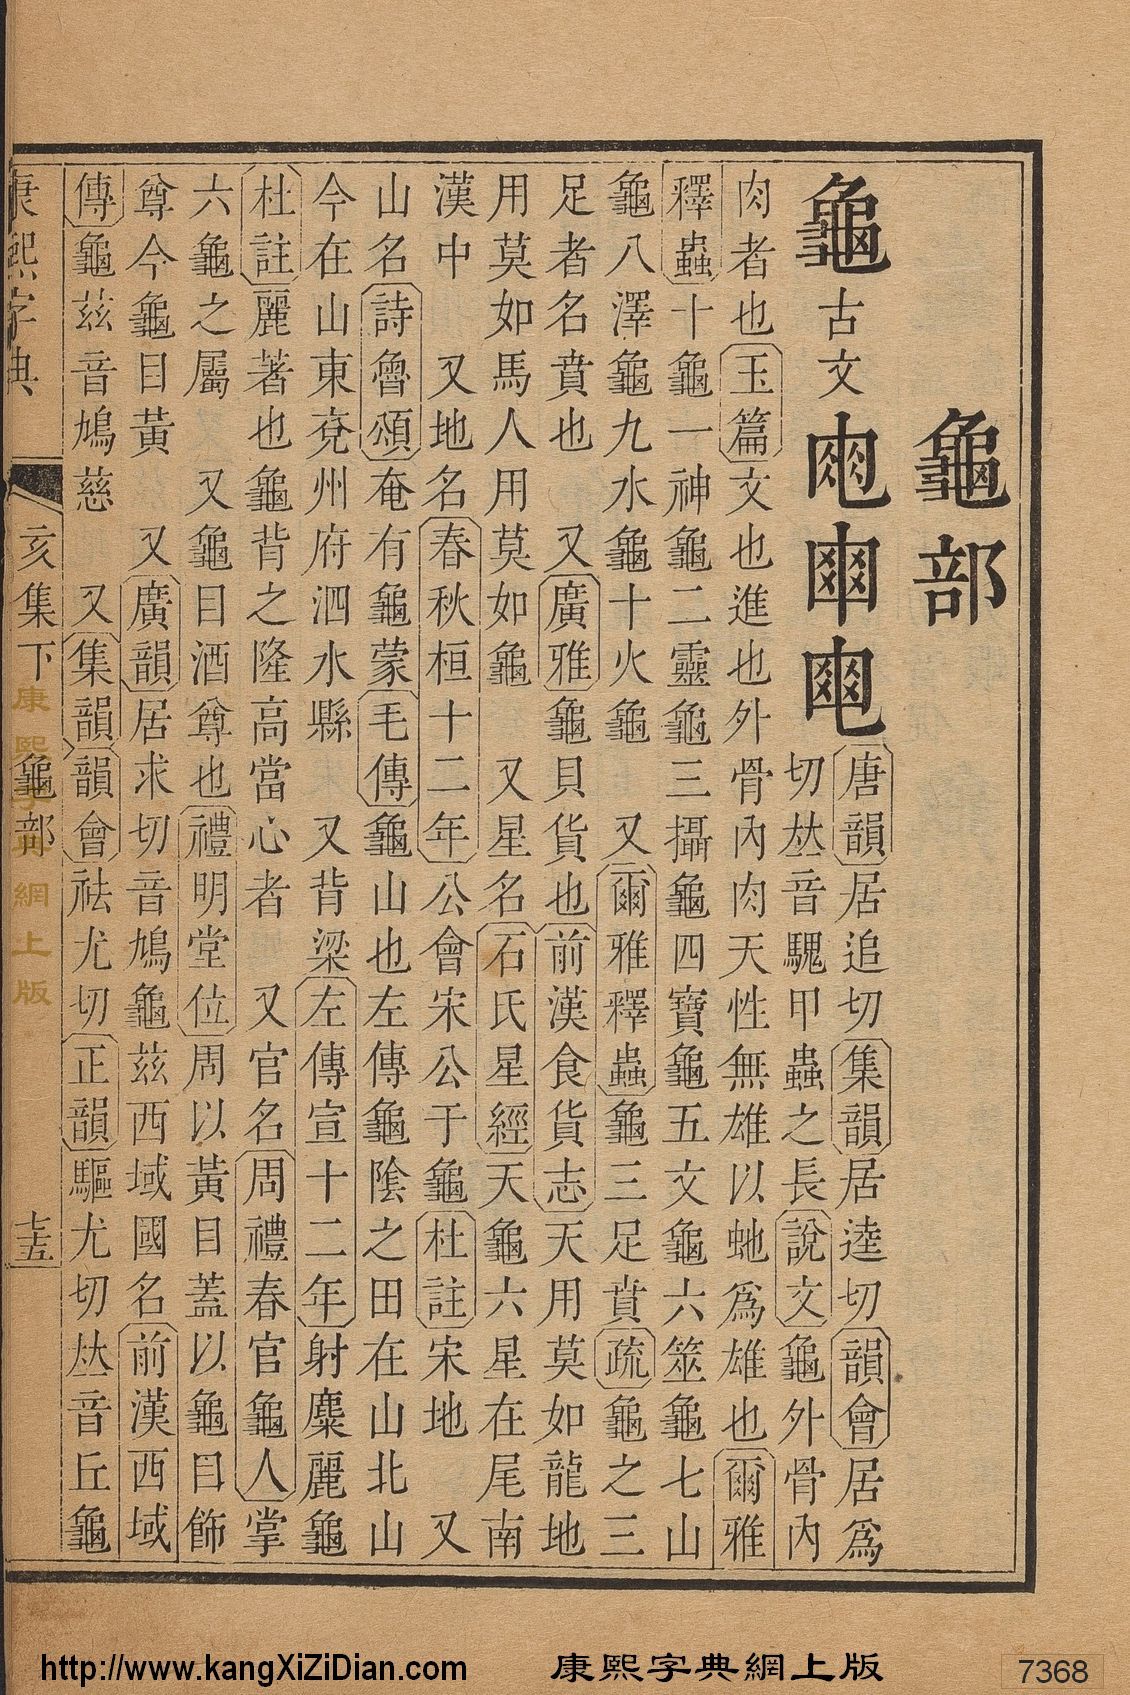 龜部
龜古文𠁴𠕾𪚿唐韻居追切集韻居逵切韻會居爲
切𠀤音騩甲蟲之長說文龜外骨內
肉者也玉篇文也進也外骨內肉天性無雄以虵爲雄也爾雅
釋蟲十龜一神龜二靈龜三攝龜四寶龜五文龜六筮龜七山
龜八澤龜九水龜十火龜 又爾雅釋蟲龜三足賁疏龜之三
足者名賁也 又廣雅龜貝貨也前漢食貨志天用莫如龍地
用莫如馬人用莫如龜 又星名石氏星經天龜六星在尾南
漢中 又地名春秋桓十二年公會宋公于龜杜註宋地 又
山名詩魯頌奄有龜蒙毛傳龜山也左傳龜陰之田在山北山
今在山東兗州府泗水縣 又背梁左傳宣十二年射麋麗龜
杜註麗著也龜背之隆高當心者 又官名周禮春官龜人掌
六龜之屬 又龜目酒尊也禮明堂位周以黃目蓋以龜目飾
尊今龜目黃 又廣韻居求切音鳩龜茲西域國名前漢西域
傳龜茲音鳩慈 又集韻韻會祛尤切正韻驅尤切𠀤音丘龜
康熙字典 亥集下 龜部 七五
康熙字典網上版
http://www.kangXiZiDian.com 康熙字典網上版 7368